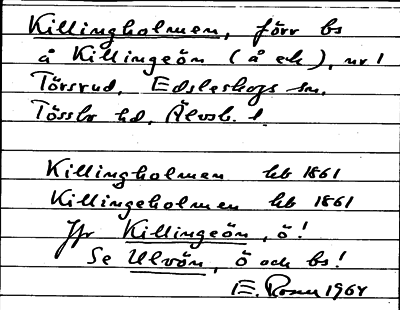 Killingholmen, förr bs
å Killingeön (å ek), nr 1
Törsrud, Edsleskogs sn.
Tössbo hd, Älvsb. l.
Killingholmen hb 1861
Killingeholmen hb 1861
Jfr Killingeön, ö!
Se Ulvön, ö och bs!
E. Rosen 1964